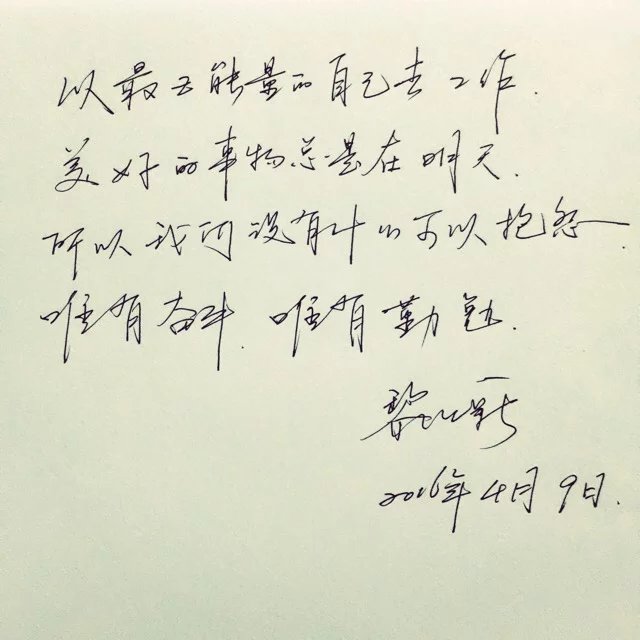 以最正能量的自己去工作.
美好的事物总是在明天.
所以我们没有什么可以抱怨.
唯有奋斗.唯有勤勉.
2016年4月9日.